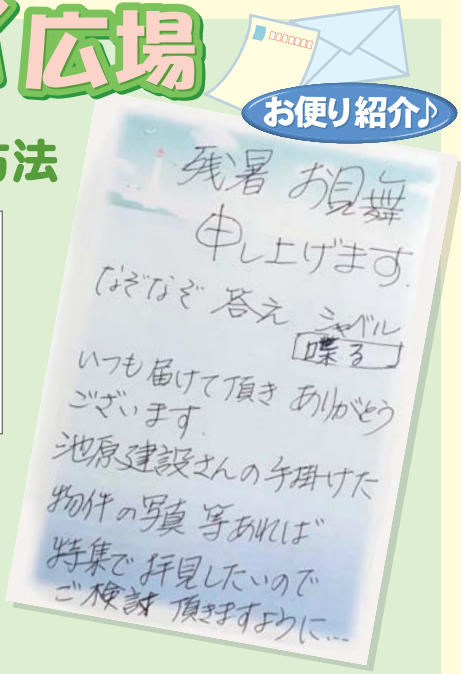 広場
お便り紹介♪
方法
残暑 お見舞
申し上げます.
なぞなぞ 答え シャベル
喋る
いつも届けて頂き ありがとう
ございます.
池原建設さんの手掛けた
物件の写真 等あれば
特集で拝見したいので
ご検討 頂きますように…